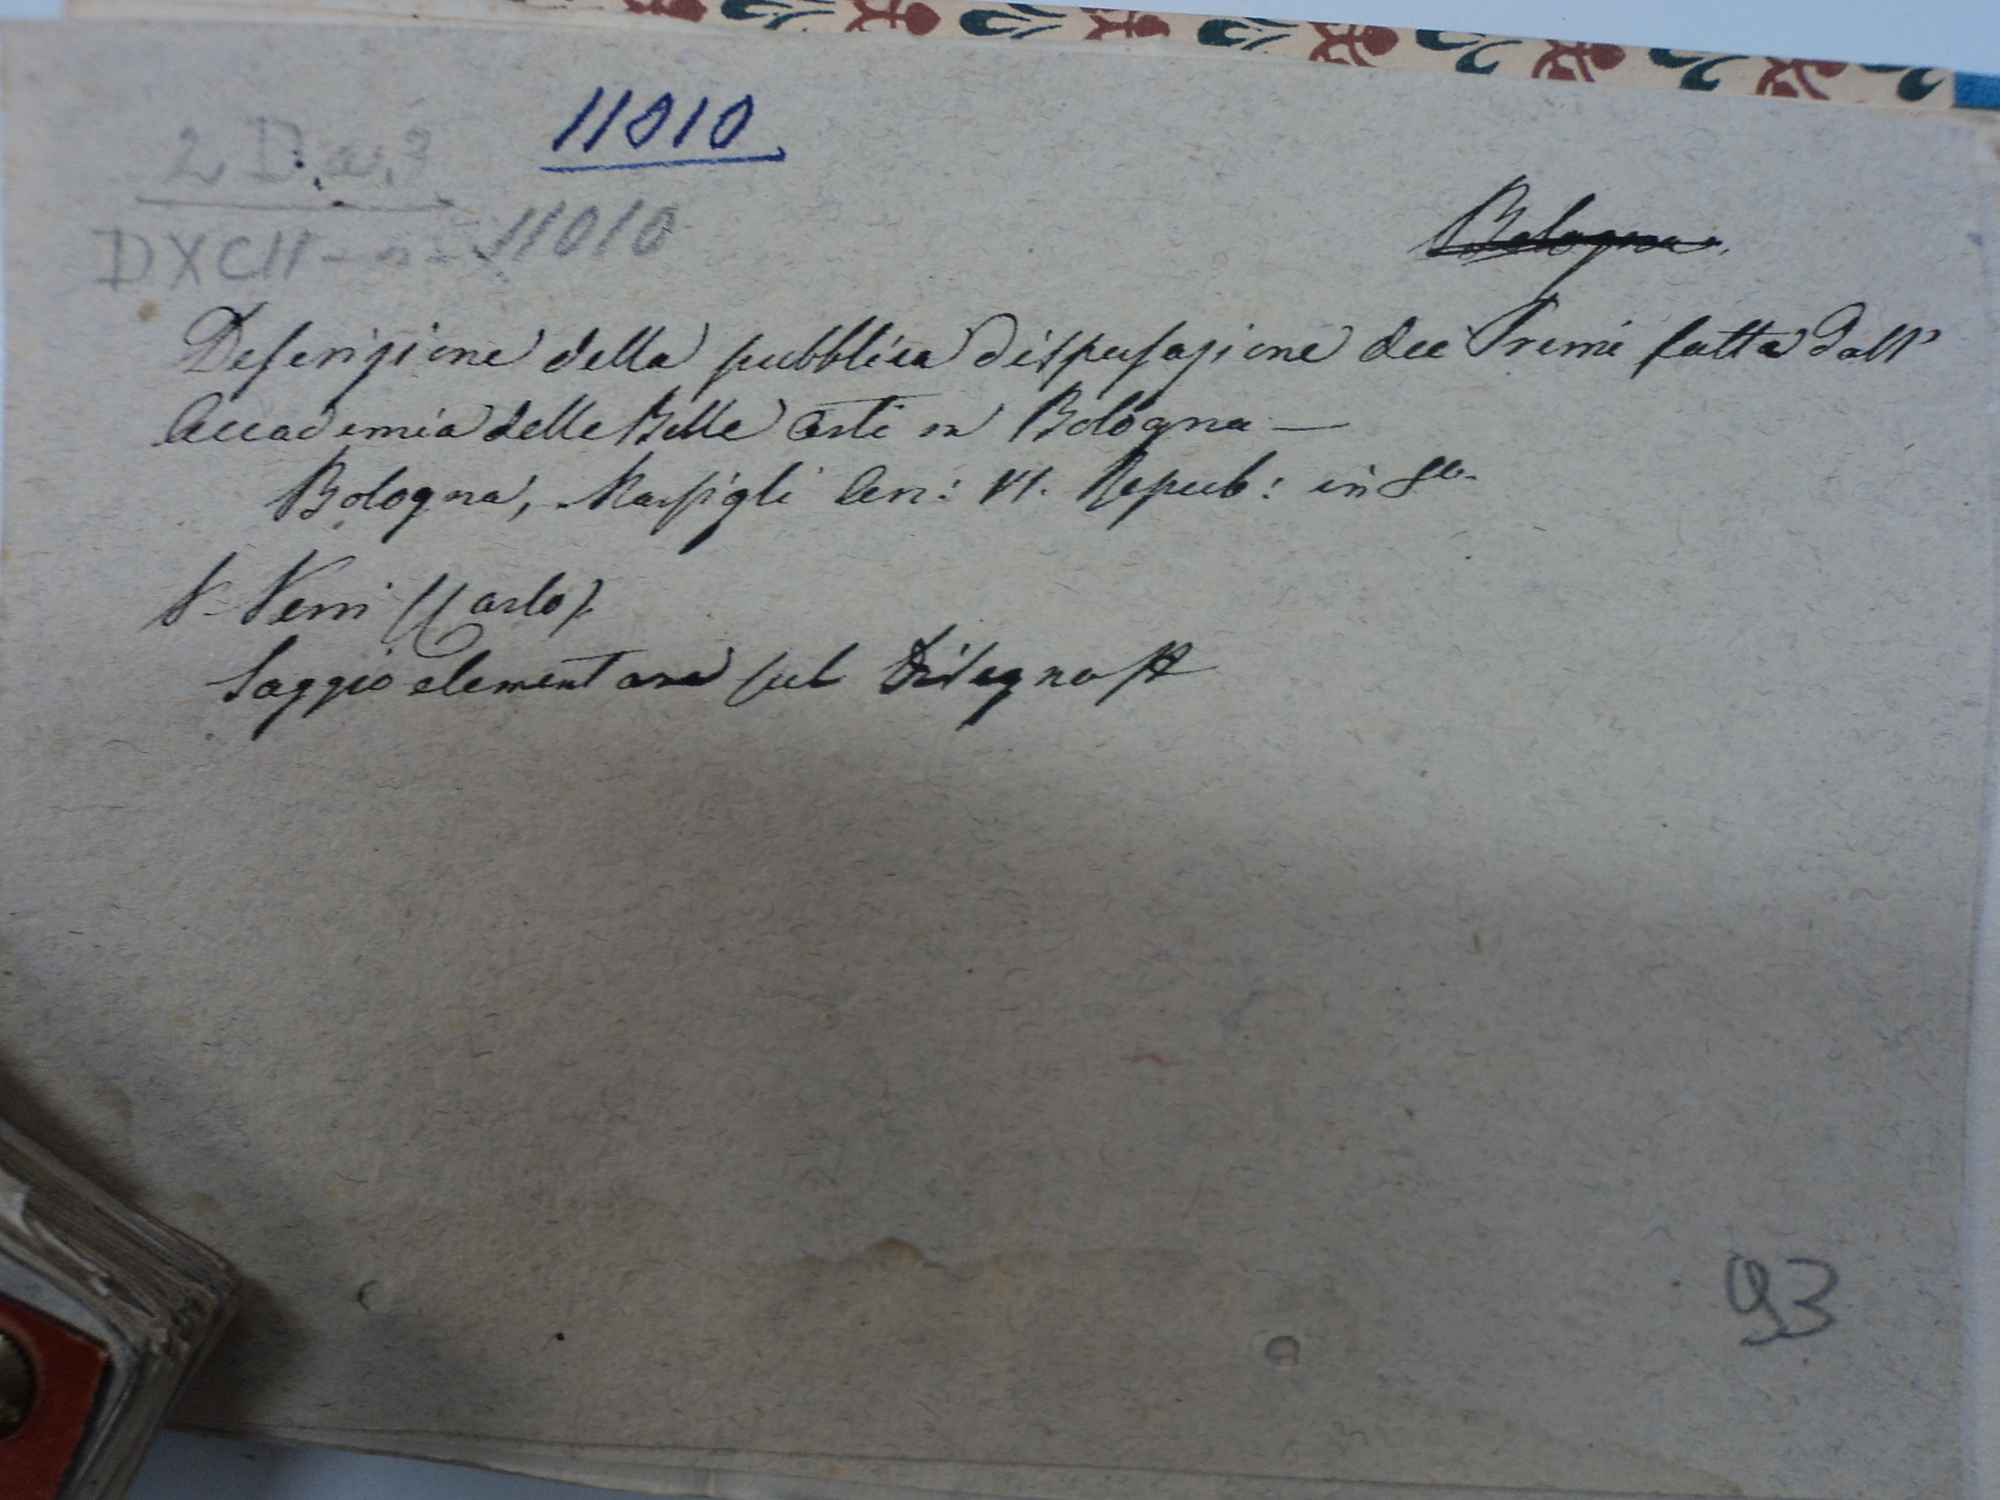 11010
2 D.a.3
DXCII - n - 11010
Bologna.
Descrizione della pubblica dispensazione dei Premi fatta dall'
Accademia delle Belle Arti in Bologna —
Bologna, Marsigli An: VI. Repub: in 8o.
V. Verri (Carlo).
Saggio elementare sul Disegno
93